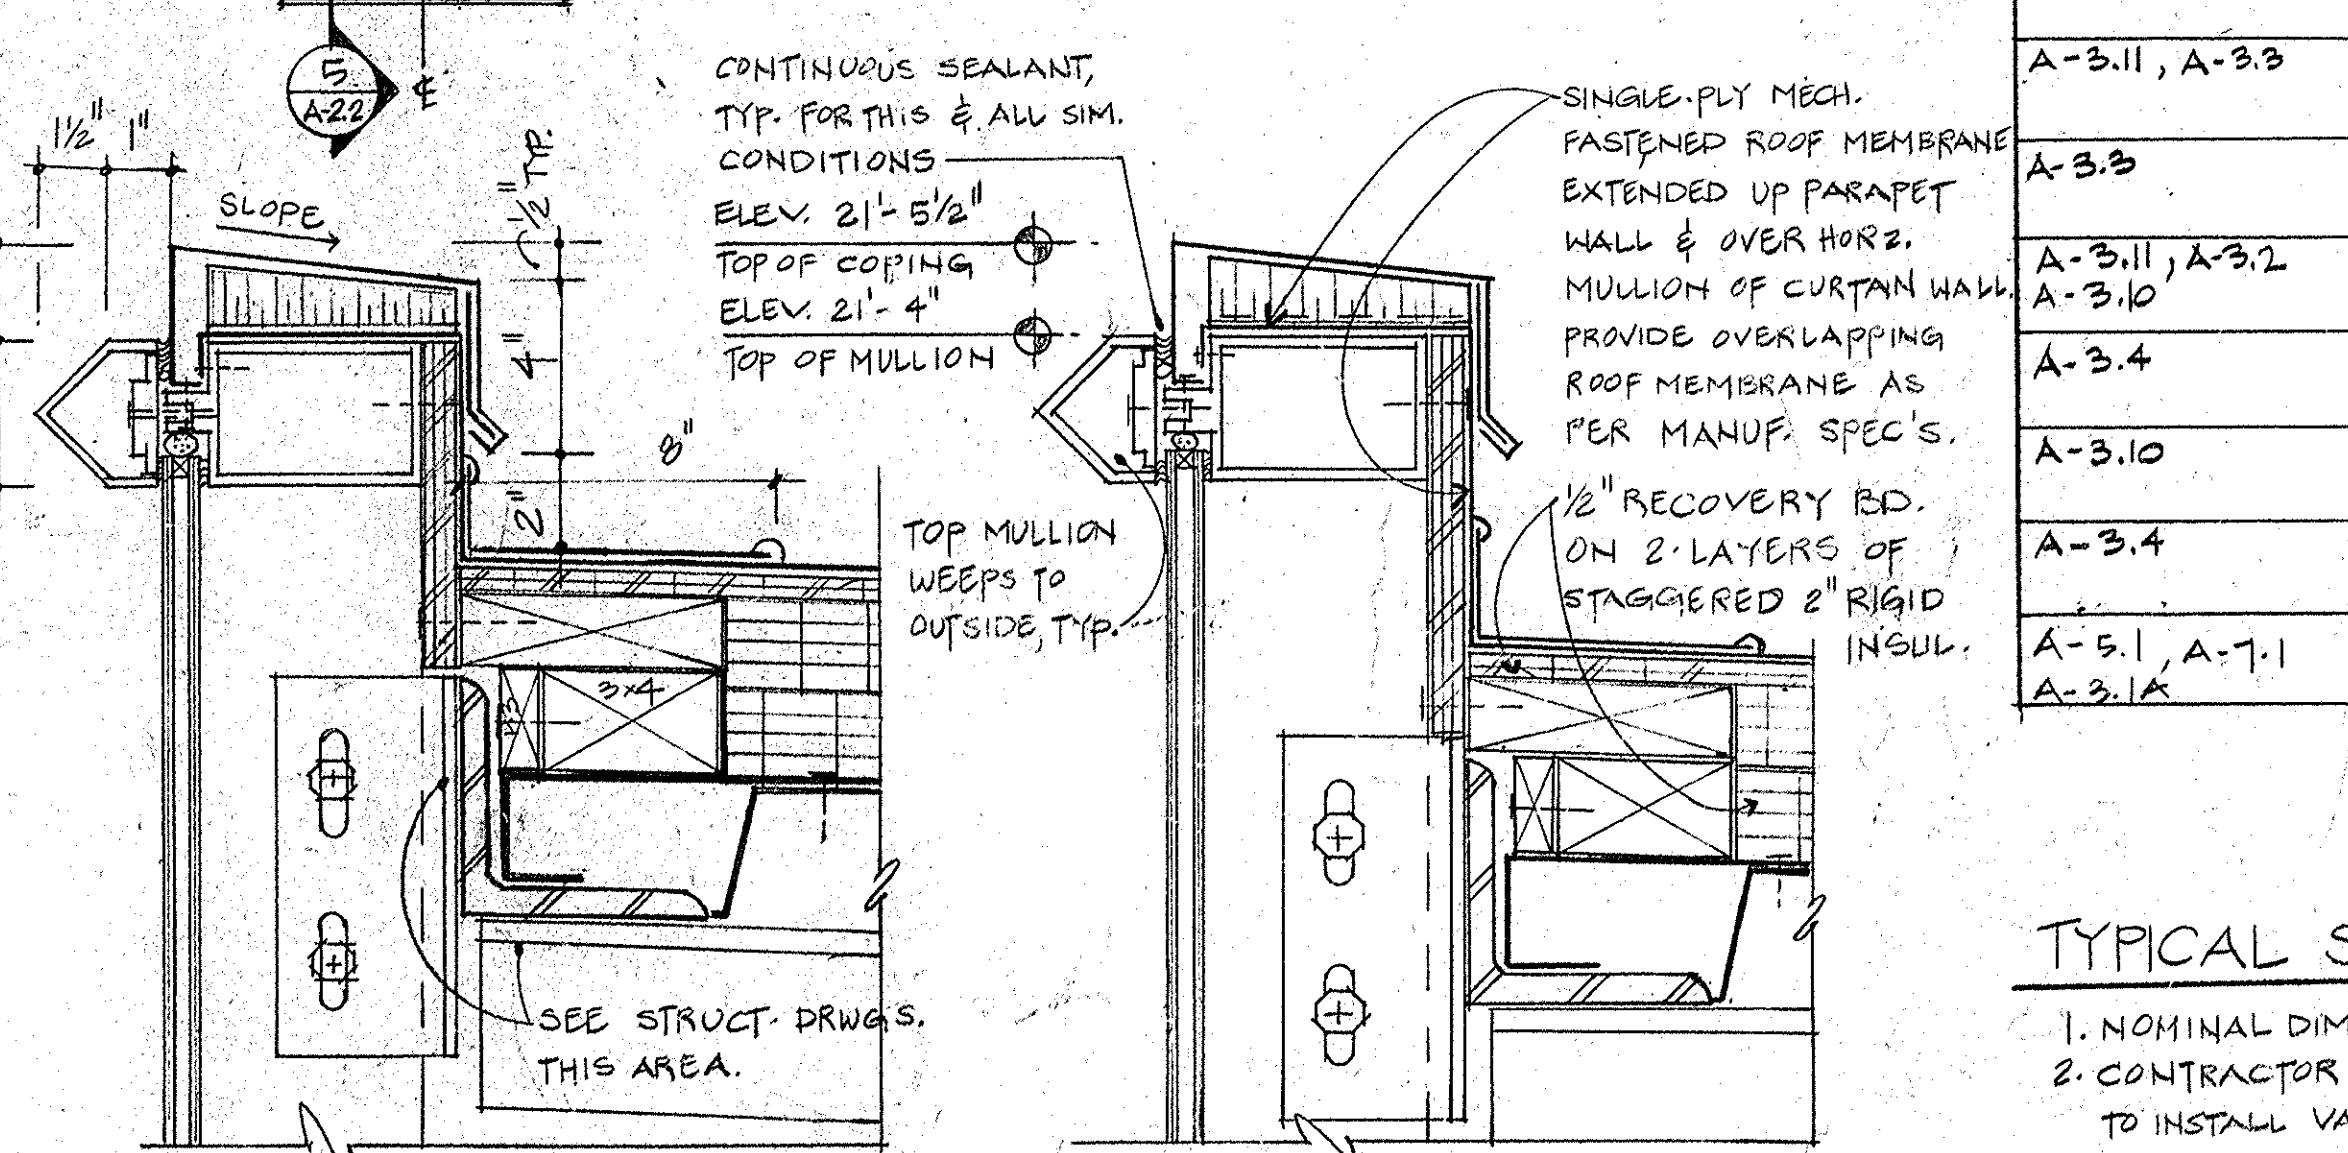 5
A-2.2
℄
1½" 1"
SLOPE
½" TYP.
4"
8"
2"
CONTINUOUS SEALANT,
TYP. FOR THIS & ALL SIM.
CONDITIONS
ELEV. 21'-5½"
TOP OF COPING
ELEV. 21'-4"
TOP OF MULLION
TOP MULLION
WEEPS TO
OUTSIDE, TYP.
3x4
SEE STRUCT. DRWGS.
THIS AREA.
SINGLE-PLY MECH.
FASTENED ROOF MEMBRANE
EXTENDED UP PARAPET
WALL & OVER HORZ.
MULLION OF CURTAIN WALL.
PROVIDE OVERLAPPING
ROOF MEMBRANE AS
PER MANUF. SPEC'S.
½" RECOVERY BD.
ON 2-LAYERS OF
STAGGERED 2" RIGID
INSUL.
A-3.11, A-3.3
A-3.3
A-3.11, A-3.2
A-3.10
A-3.4
A-3.10
A-3.4
A-5.1, A-7.1
A-3.1A
TYPICAL S
1. NOMINAL DIM
2. CONTRACTOR
TO INSTALL VA